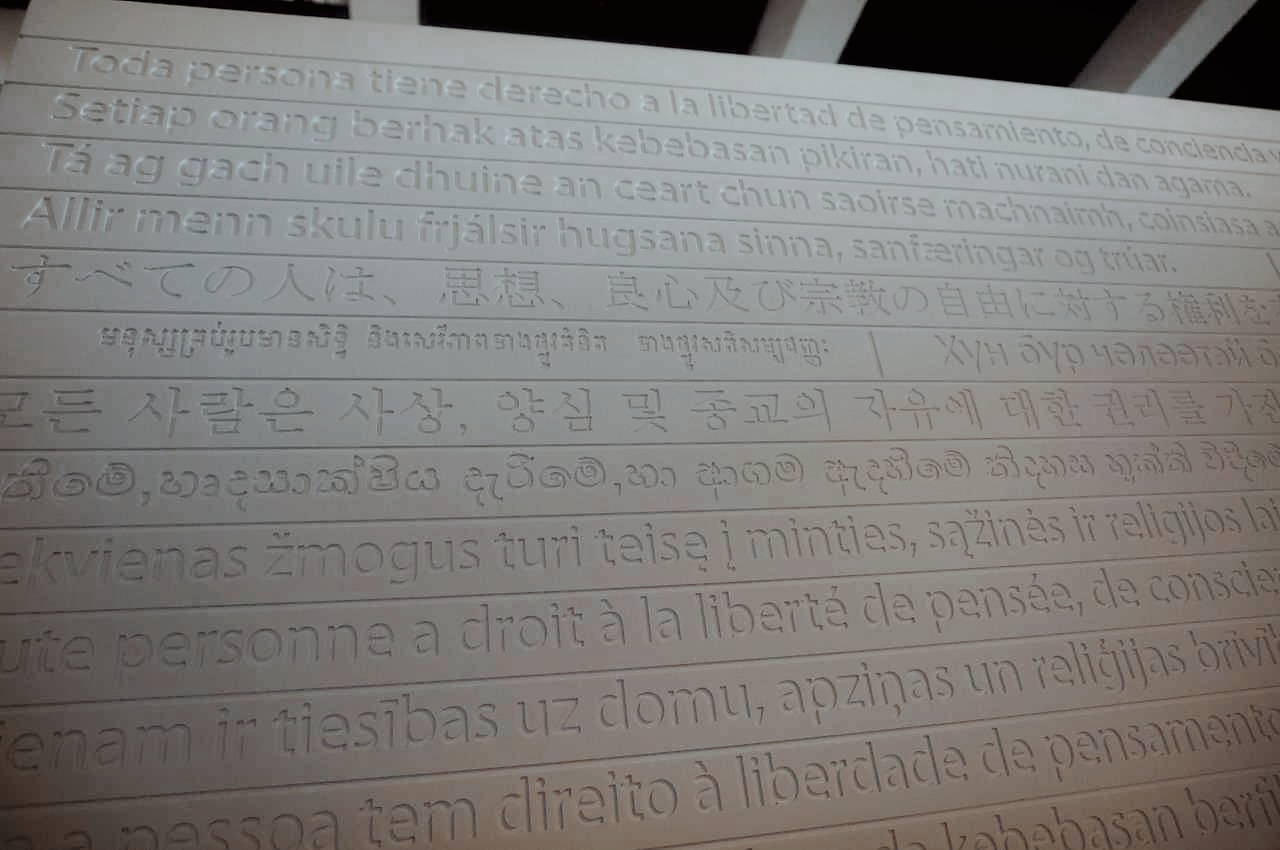 Toda persona tiene derecho a la libertad de pensamiento, de conciencia y
Setiap orang berhak atas kebebasan pikiran, hati nurani dan agama.
Tá ag gach uile dhuine an ceart chun saoirse machnaimh, coinsiasa
Allir menn skulu frjálsir hugsana sinna, sannfæringar og trúar. |
すべての人は、思想、良心及び宗教の自由に対する権利を
មនុស្សគ្រប់រូបមានសិទ្ធិ និងសេរីភាពខាងផ្លូវគំនិត ខាងផ្លូវសតិសម្បជញ្ញៈ | Хүн бүр чөлөөтэй
모든 사람은 사상, 양심 및 종교의 자유에 대한 권리를
හෘදසාක්ෂිය දැරීමේ, හා ආගම් ඇදහීමේ නිදහස
ekvienas žmogus turi teisę į minties, sąžinės ir religijos
ute personne a droit à la liberté de pensée, de conscien
ienam ir tiesības uz domu, apziņas un reliģijas brīvīb
a pessoa tem direito à liberdade de pensamento
kebebasan